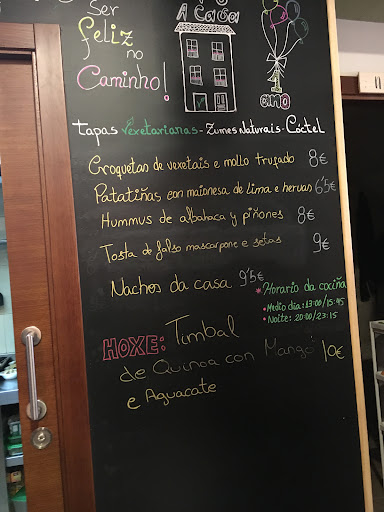 Ser
feliz
no
Caminho!
A Casa
1
ano
Tapas Vexetarianas - Zumes Naturais - Cóctel
Croquetas de vexetais e mollo trufado 8€
Patatiñas con maionesa de lima e herbas 6'5€
Hummus de albahaca y piñones 8€
Tosta de falso mascarpone e setas 9€
Nachos da casa 9'5€
* Horario da cociña
• Medio dia: 13:00/15:45
• Noite: 20:00/23:15
HOXE: Timbal
de Quinoa con Mango 10€
e Aguacate